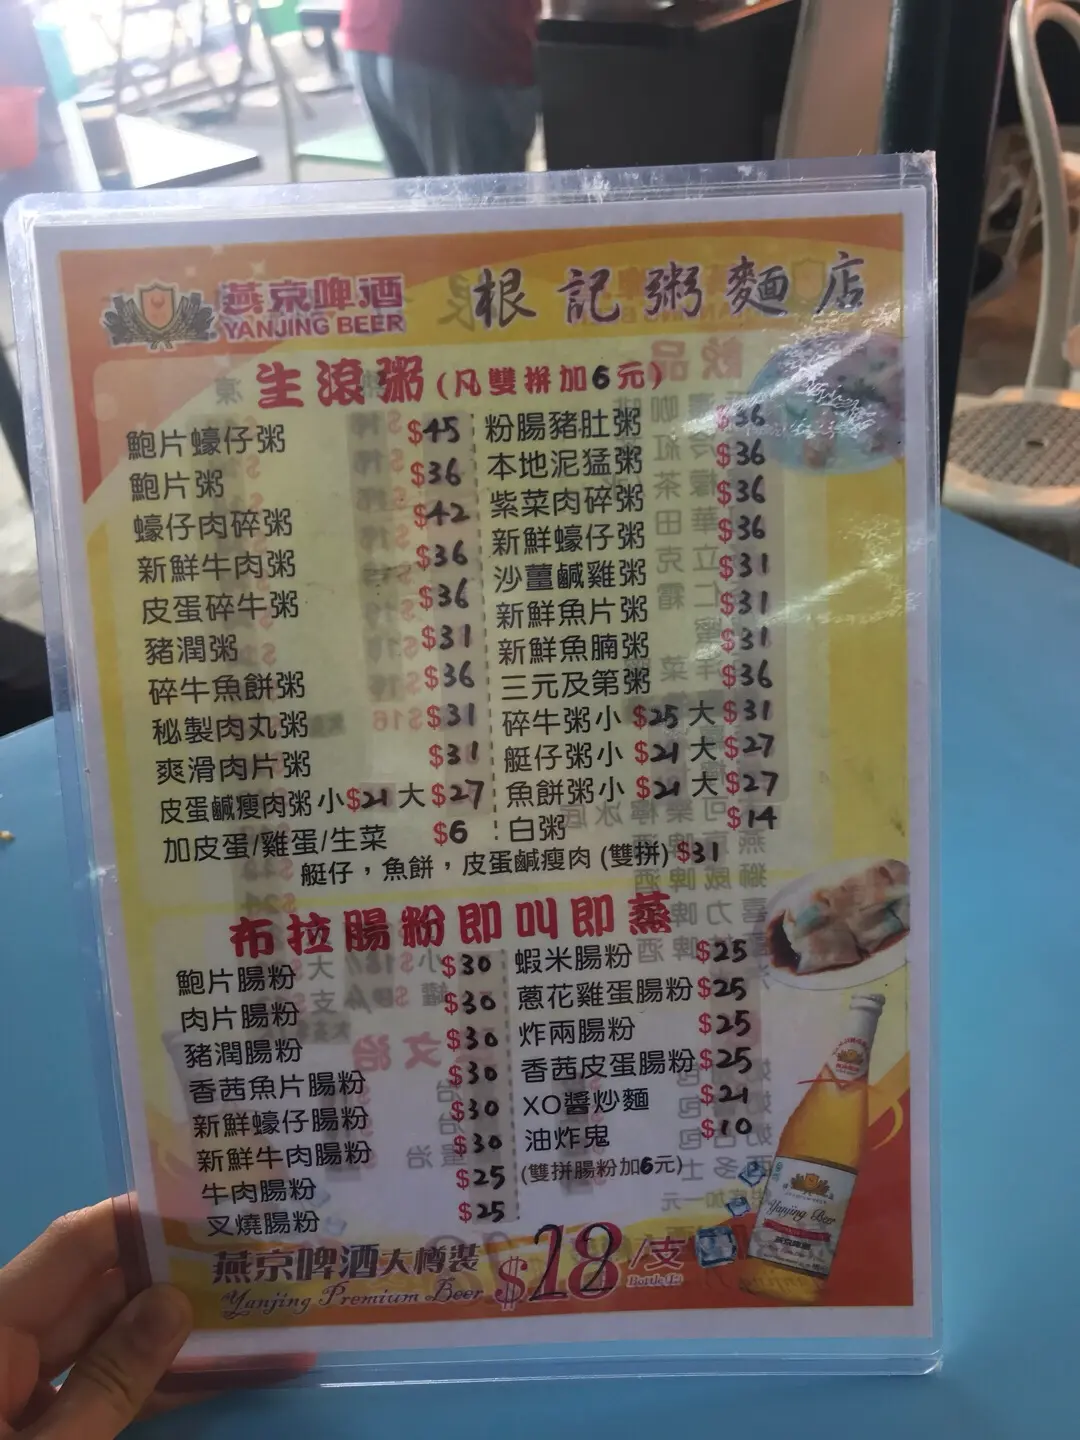 燕京啤酒
YANJING BEER
根記粥麵店
生滾粥(凡雙拼加6元)
鮑片蠔仔粥 $45
鮑片粥 $36
蠔仔肉碎粥 $42
新鮮牛肉粥 $36
皮蛋碎牛粥 $36
豬潤粥 $31
碎牛魚餅粥 $36
秘製肉丸粥 $31
爽滑肉片粥 $31
皮蛋鹹瘦肉粥 小$21 大$27
加皮蛋/雞蛋/生菜 $6
粉腸豬肚粥 $36
本地泥猛粥 $36
紫菜肉碎粥 $36
新鮮蠔仔粥 $36
沙薑鹹雞粥 $31
新鮮魚片粥 $31
新鮮魚腩粥 $31
三元及第粥 $36
碎牛粥 小$25 大$31
艇仔粥 小$21 大$27
魚餅粥 小$21 大$27
白粥 $14
艇仔,魚餅,皮蛋鹹瘦肉(雙拼) $31
布拉腸粉即叫即蒸
鮑片腸粉 $30
肉片腸粉 $30
豬潤腸粉 $30
香茜魚片腸粉 $30
新鮮蠔仔腸粉 $30
新鮮牛肉腸粉 $30
牛肉腸粉 $25
叉燒腸粉 $25
蝦米腸粉 $25
蔥花雞蛋腸粉 $25
炸兩腸粉 $25
香茜皮蛋腸粉 $25
XO醬炒麵 $21
油炸鬼 $10
(雙拼腸粉加6元)
燕京啤酒大樽裝 $18/支
Yanjing Premium Beer
Yanjing Beer
燕京啤酒